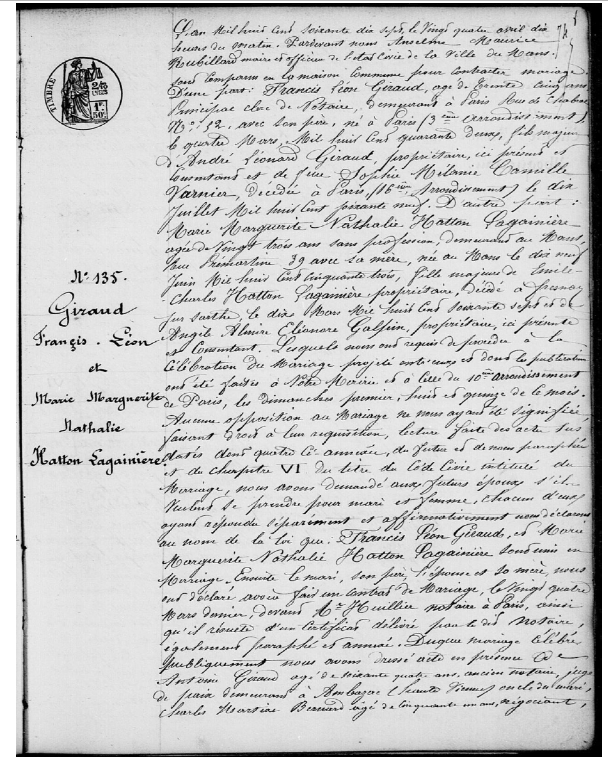 L'an Mil huit Cent soixante dix sept, le Vingt quatre avril dix
heures du matin. Pardevant nous Anselme Maurice
Rubillard maire et officier de l'état civil de la Ville du Mans.
Sont comparus en la maison Commune pour contracter mariage
D'une part: Francis Léon Giraud, agé de trente cinq ans
principal clerc de Notaire, demeurant à Paris Rue de Chabrol
N° 52. avec son père, né à Paris (3ème arrondissement)
le quatre Mars, Mil huit Cent quarante deux, fils majeur
d'André Léonard Giraud, propriétaire, ici présent et
Consentant et de feue Sophie Mélanie Camille
Varnier, décédée à Paris, (16ème Arrondissement) le dix
Juillet Mil huit Cent soixante neuf. D'autre part:
Marie Marguerite Nathalie Hatton Lagainière
agée de Vingt trois ans sans profession, demeurant au Mans,
Rue Prémartine 39 avec sa mère, née au Mans le dix neuf
Juin Mil huit Cent Cinquante trois, fille majeure de Emile
Charles Hatton Lagainière propriétaire, Décédé à fresnay
sur sarthe, le dix Mars Mil huit Cent Soixante sept et de
Angèle Almire Eléonore Galpin, propriétaire, ici présente
et Consentant. Lesquels nous ont requis de procéder à la
Célébration du Mariage projeté entr'eux et dont les publications
ont été faites à Notre Mairie et à celle du 10ème arrondissement
de Paris, les dimanches premier, huit et quinze de le mois.
Aucune opposition au Mariage ne nous ayant été signifiée
faisant droit à leur requisition, lecture faite des actes sus
datés dont quatre Ci-annexés, du futur et de nous paraphés
et du chapitre VI du titre du Code Civil intitulé du
Mariage, nous avons demandé aux futurs époux s'ils
Veulent se prendre pour mari et femme, chacun d'eux
ayant répondu séparément et affirmativement nous déclarons
au nom de la loi que Francis Léon Giraud, et Marie
Marguerite Nathalie Hatton Lagainière sont unis en
Mariage. Ensuite le mari, son père, l'épouse et sa mère, nous
ont déclaré avoir fait un contrat de Mariage, le Vingt quatre
Mars dernier, devant Me Huillier notaire à Paris, ainsi
qu'il résulte d'un certificat délivré par le dit notaire,
également paraphé et annexé. Duquel mariage célébré
publiquement nous avons dressé acte en présence de
Antoine Giraud agé de soixante quatre ans, ancien notaire, juge
de paix demeurant à Ambazac (haute Vienne) oncle du mari,
Charles Bernard agé de cinquante ans, négociant,
TIMBRE
1F.
50C.
N° 135.
Giraud
Françis. Léon
et
Marie Marguerite
Nathalie
Hatton Lagainière